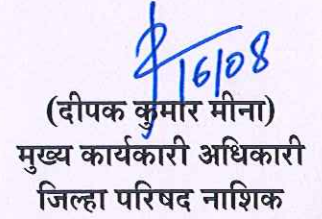 16/08
(दीपक कुमार मीना)
मुख्य कार्यकारी अधिकारी
जिल्हा परिषद नाशिक